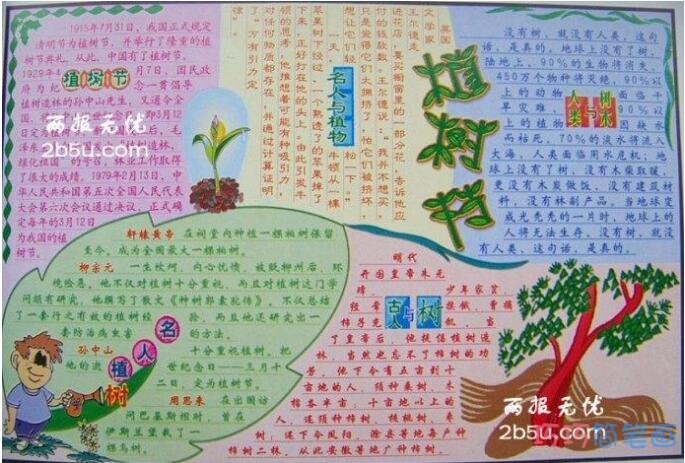 1915年7月31日，我国正式规定
清明节为植树节，并举行了隆重的植
树节典礼。从此，中国有了植树节。
植树节
植树造林的孙中山先生，又通令全
大会第六次会议通过决议，正式确
定每年的3月12日
为我国的植
树节。
英国
文学家
王尔德走
进花店，要买橱窗里的一部分花，告诉他应
付的钱款数。王尔德说：“我并不想买，
只是觉得它们太拥挤了，怕它们被挤坏，
想让它们轻
松一下。”
名人与植物
一天，牛顿从一棵
苹果树下经过，一个熟透了的苹果掉了
下来，正好打在他的头上。由此引发牛
顿的思考，他推想着可能有种吸引力，
对任何物质都存在，并通过计算证明
了“万有引力定
律”。
没有树，就没有人类，这句
话，是真的。地球上没有了树，
陆地上，90%的生物将消失，
450万个物种将灭绝，90%以
人类与树木
木枯死，70%的淡水将流入
大海，人类面临用水危机；地
球上没有了树，没有木柴取暖，
更没有木炭做饭，没有建筑材
料，没有林副产品。当地球变
成光秃秃的一片时，地球上的
人将无法生存，没有树，就没
有人类，这句话，是真的。
轩辕黄帝 在祠堂内种植一棵柏树保留
至今，成为全国最大一棵柏树。
柳宗元 一生坎坷，内心忧愤，被贬柳州后，环
境险恶，他不仅对植树十分重视，而且对植树这门学
问颇有研究，他撰写了散文《种树郭橐驼传》，不仅总结
了一套行之有效的植树经验，而且他还研究出一
套防治病虫害的方法。
名人植树
孙中山 十分重视植树，把
他的逝世纪念日——三月十
二日，定为植树节。
周恩来 在出国访
问巴基斯坦时，曾在
伊斯兰堡栽了一
棵乌树。
明代
开国皇帝朱元
璋，少年家贫，
古人与树
了皇帝后，他提倡植树造
林，当然也忘不了柿树的功
劳。他下令有五亩到十
亩地的人，须种桑树、木
棉各半亩，十亩地以上的
人，还须种柿树、核桃树、枣
树；还下令凤阳、滁县等地每户种
柿树二株，从此安徽等地广种柿树。
两报无优
2b5u.com
两报无优
2b5u.com
巧巧简笔画